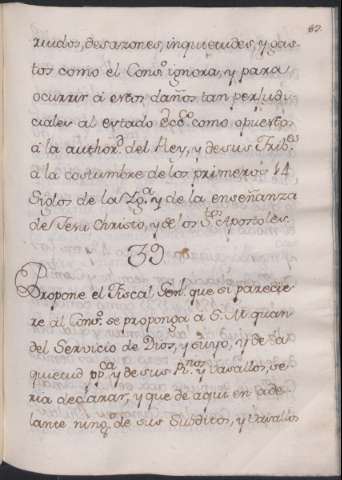 87.
ruidos, desazones, inquietudes, y gas-
tos como el Cons.º ignora, y para
ocurrir á estos daños tan perjudi-
ciales al estado ecc.º como opuestos
á la author.d del Rey, y de sus Trib.es
á la costumbre de los primeros 14
Siglos de la Ygª y de la enseñanza
de Jesu Christo, y de los S.tos Apostoles.
39.
Propone el Fiscal Gen.l que si parecie-
re al Cons.º se proponga á S. M. quan
del Servicio de Dios, y suyo, y de la
quietud pp.ca y de sus R.nos y vasallos, se-
ria declarar, y que de aqui en ade-
lante ning.º de sus Subditos, y Vasallos